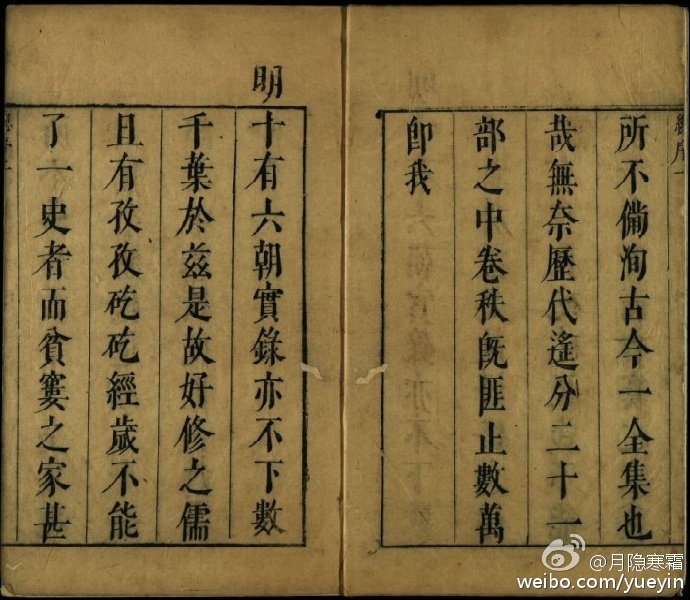 所不備洵古今一全集也
哉無奈歷代遙分二十一
部之中卷秩旣匪止數萬
卽我
明
十有六朝實錄亦不下數
千葉於茲是故好修之儒
且有孜孜矻矻經歲不能
了一史者而貧窶之家甚
@月隐寒霜
weibo.com/yueyin